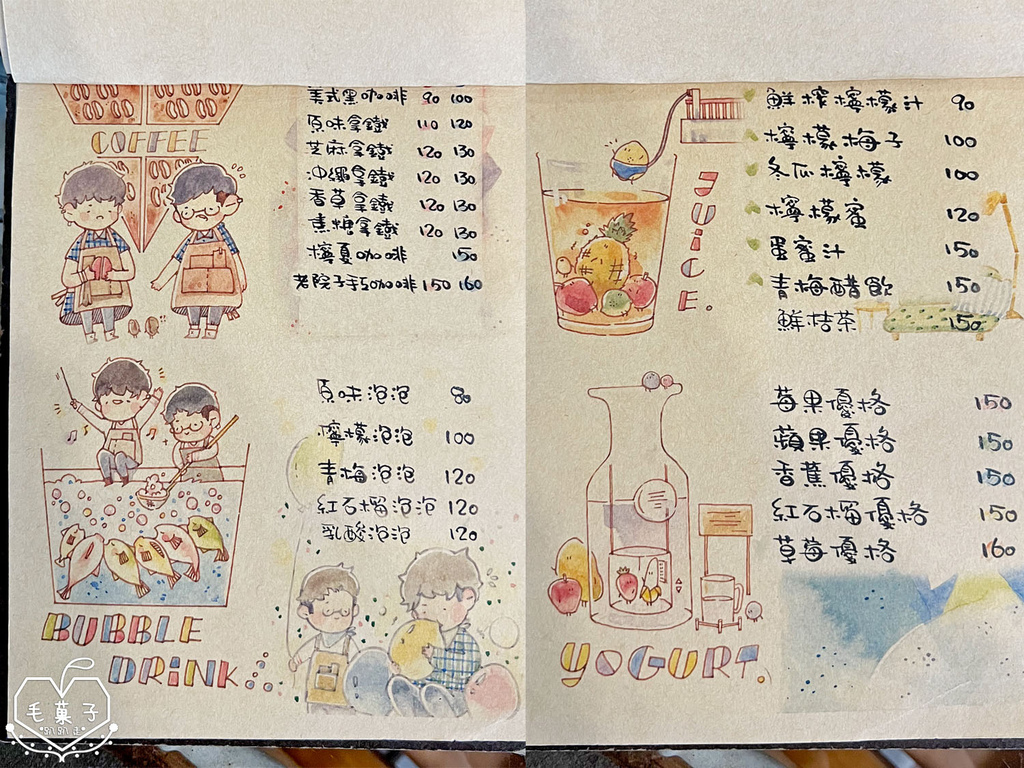 COFFEE
美式黑咖啡 90 100
原味拿鐵 110 120
芝麻拿鐵 120 130
沖繩拿鐵 120 130
香草拿鐵 120 130
焦糖拿鐵 120 130
檸夏咖啡 150
老院子手沖咖啡 150 160
原味泡泡 80
檸檬泡泡 100
青梅泡泡 120
紅石榴泡泡 120
乳酸泡泡 120
BUBBLE
DRINK
毛菓子
JUICE.
鮮榨檸檬汁 90
檸檬梅子 100
冬瓜檸檬 100
檸檬蜜 120
蛋蜜汁 150
青梅醋飲 150
鮮桔茶 150
莓果優格 150
蘋果優格 150
香蕉優格 150
紅石榴優格 150
草莓優格 160
YOGURT.